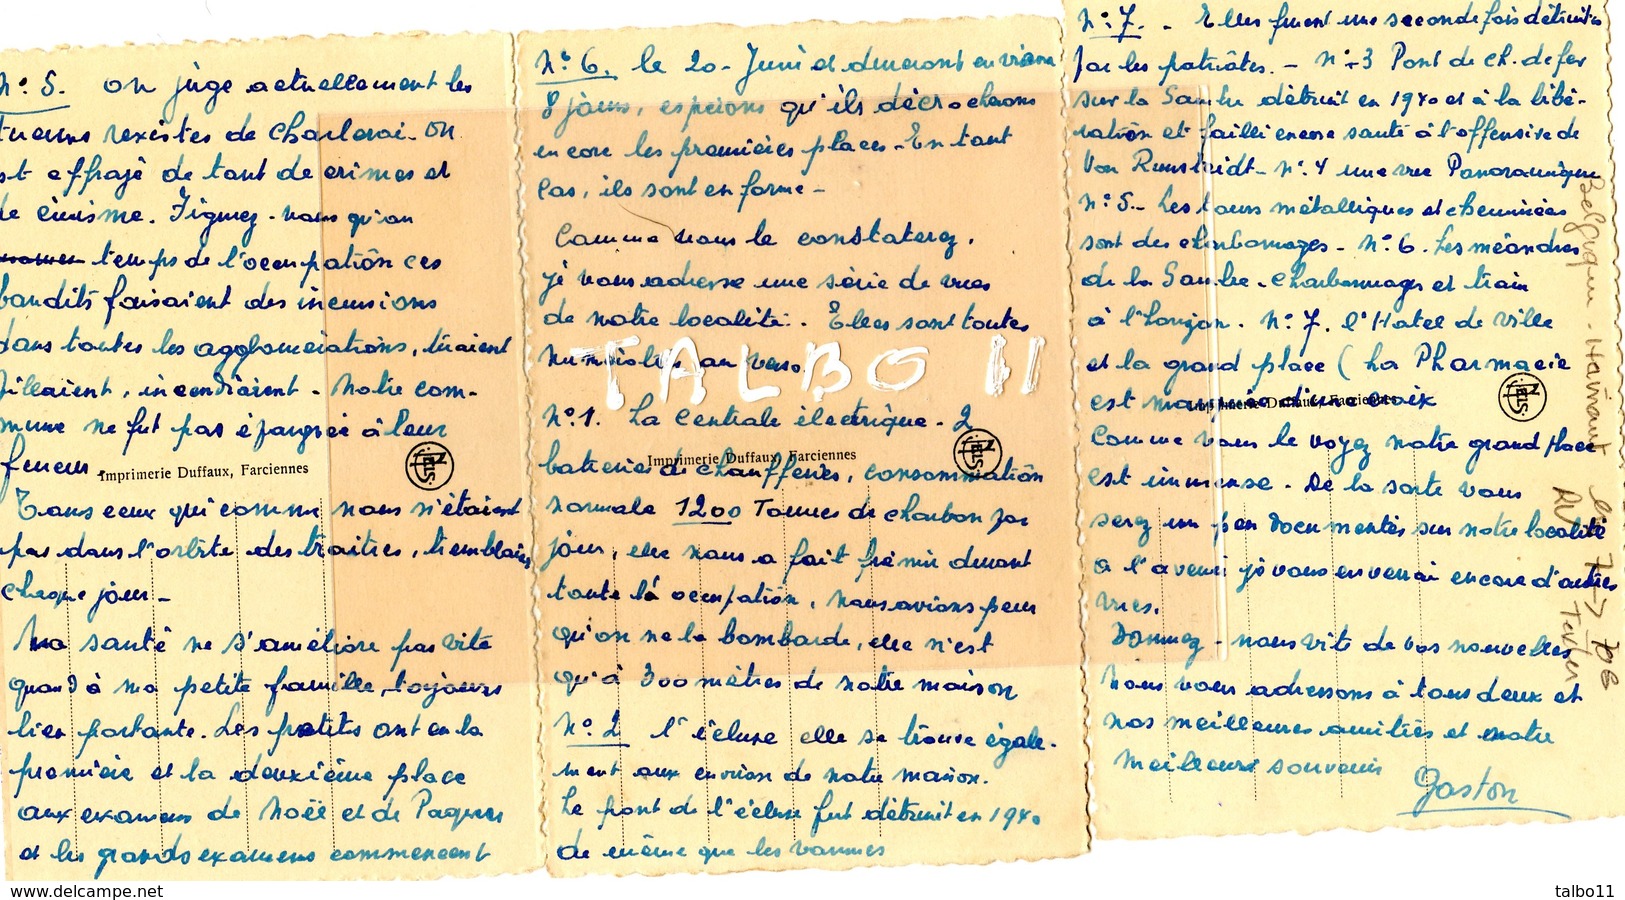 N° 5. On juge actuellement les
tueurs rexistes de Charleroi. On
st effrayé de tant de crimes et
de cinisme. Figurez-vous qu'en
temps de l'occupation ces
bandits faisaient des incursions
dans toutes les agglomérations, tiraient
pillaient, incendiaient. Notre com-
mune ne fut pas épargnée à leur
fureur.
Imprimerie Duffaux, Farciennes
NELS
Tous ceux qui comme nous n'étaient
pas dans l'orbite des traitres, tremblaient
chaque jour -
Ma santé ne s'améliore pas vite
quand à ma petite famille, toujours
bien portante. Les petites ont eu la
première et la deuxième place
aux examens de Noël et de Paques
et les grands examens commencent
N° 6. le 20 - Juni et dureront environ
8 jours, espérons qu'ils décrocherons
encore les premières places - En tout
cas, ils sont en forme -
Comme vous le constaterez,
je vous adresse une série de vues
de notre localité. Elles sont toutes
numérotés au verso
TALBO 11
N° 1. La Centrale électrique - 2
Imprimerie Duffaux, Farciennes
NELS
batteries de chaufferies, consommation
normale 1200 Tonnes de charbon par
jour, elle nous a fait frémir durant
toute la occupation, nous avions peur
qu'on ne la bombarde, elle n'est
qu'à 300 mètres de notre maison
N° 2 l'écluse elle se trouve égale-
ment aux environ de notre maison.
Le pont de l'écluse fut détruit en 1940
de même que les vannes
N° 7. - Elles furent une seconde fois détruites
par les patriotes. - N° 3 Pont de ch. de fer
sur la Sambre détruit en 1940 et à la libé-
ration et failli encore sauté à l'offensive de
Von Runstaidt - N° 4 une vue Panoramique
N° 5 - Les tours métalliques et cheminées
sont des charbonnages - N° 6. Les méandres
de la Sambre - Charbonnages et train
à l'horizon. N° 7. l'Hotel de Ville
et la grand place (La Pharmacie
est marquée d'une croix
Imprimerie Duffaux, Farciennes
NELS
Comme vous le voyez notre grand place
est immense. De la sorte vous
serez un peu documentés sur notre localité
a l'avenir je vous enverrai encore d'autres
vues.
Donnez-nous vite de vos nouvelles
Nous vous adressons à tous deux et
nos meilleures amitiés et notre
meilleurs souvenirs
Gaston
Belgique - Hainaut
www.delcampe.net
talbo11